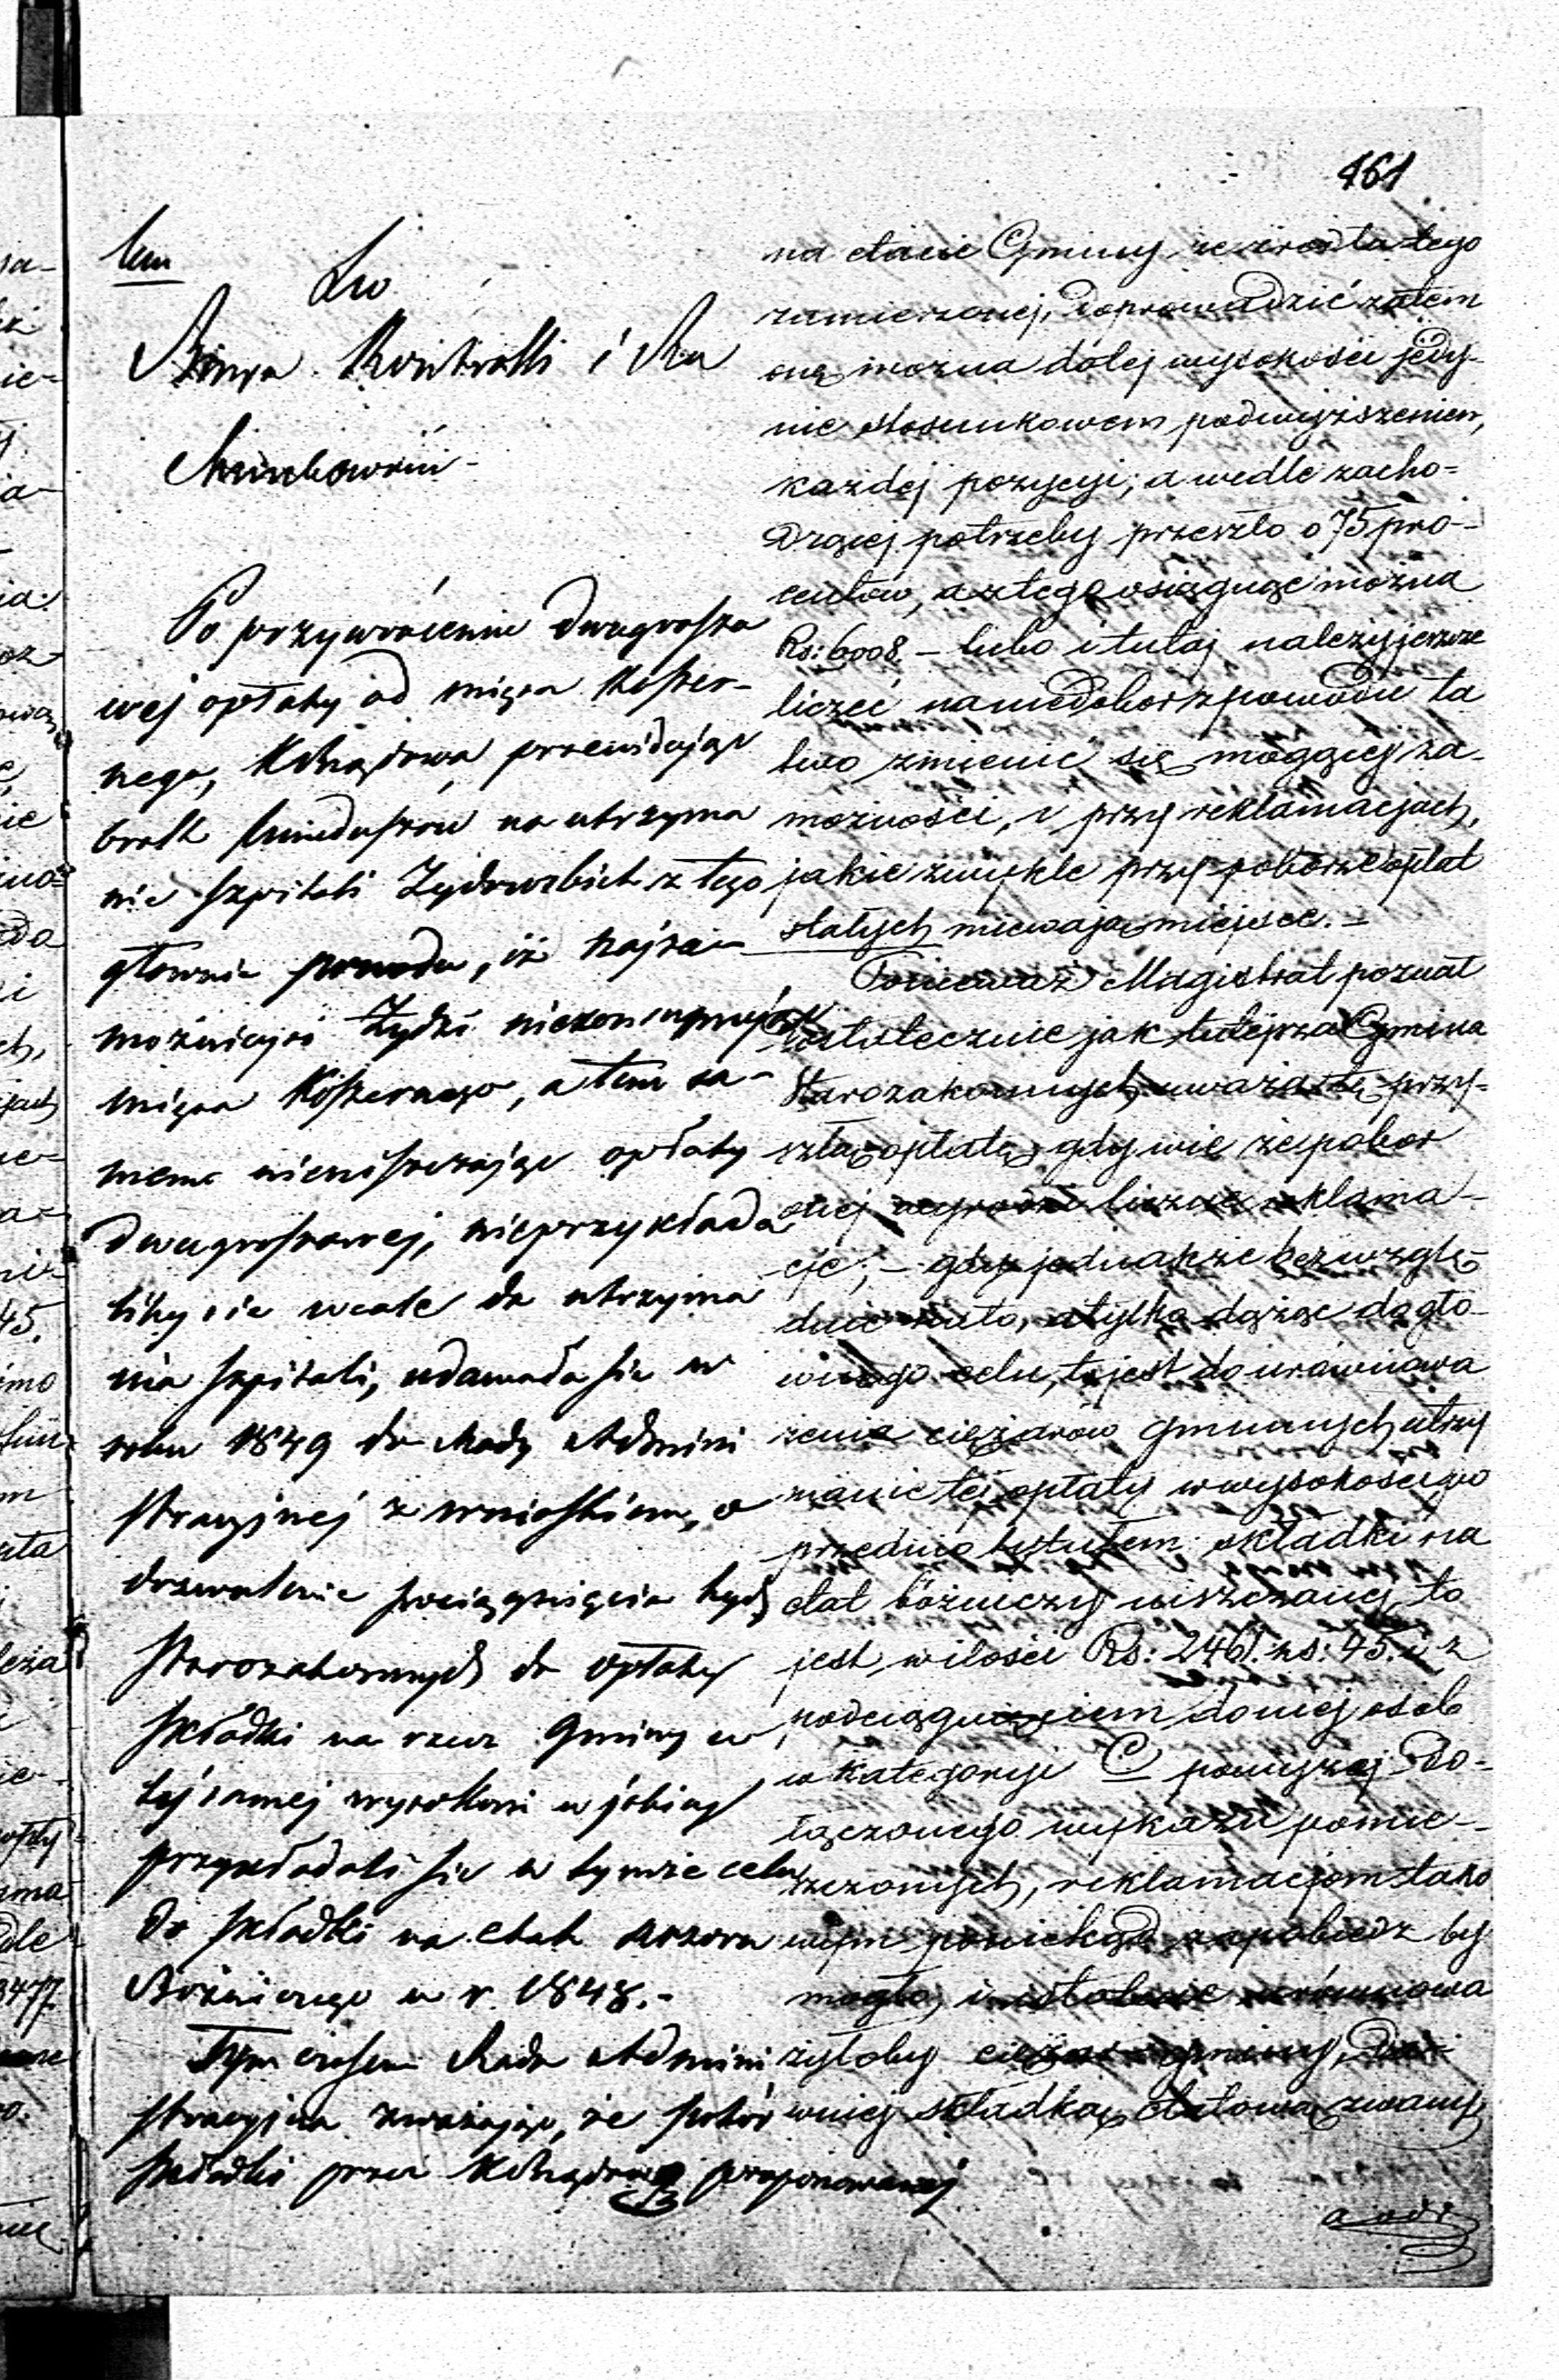 461
Lvo
Biura Kontrolli i Ra
chunkowości -
Po przywróceniu dwugrosza
wej opłaty od mięsa koszer-
nego, K. Rządowa przewidując
brak funduszów na utrzyma
nie szpitali Żydowskich z tego
głownie powodu, iż najza-
możniejsi Żydzi niekonsumując
mięsa Koszernego, a tem sa-
mem nieuiszczając opłaty
dwugroszowej, nieprzykłada
liby się wcale do utrzyma
nia szpitali, udawała się w
roku 1849 do Rady Admini
stracyjnej z wnioskiem, o
dozwolenie pociągnięcia tych
starozakonnych do opłaty
składki na rzecz Gminy w
tej samej wysokości w jakiej
przykładali się w tymże celu
do składki na etat dozoru
Bóżniczego w r. 1848.-
Tym czasem Rada Admini
stracyjna zważając, że pobór
składki przez K. Rządową proponowanej
na etacie Gminy, ze źródła tego
zamierzonej, doprowadzić zatem
oną można do tej wysokości jedy-
nie stosunkowem podwyższeniem,
każdej pozycyi; a wedle zacho-
dzącej potrzeby przeszło o 75 pro-
centów, a z tego osiągnąć można
Rs: 6008. - lubo i tutaj należy jeszcze
liczyć na niedobor z powodu ła
two zmienić się mogącej za-
możności, i przy reklamacjach,
jakie zwykle przy poborze opłat
stałych miewają miejsce. -
Ponieważ Magistrat poznał
dostatecznie jak tutejsza Gmina
Starozakonnych uważa tę przy-
szłą opłatę, gdy wie że pobor
onej liczne reklama-
cje; - gdy jednakże bezwzglę-
dnie na to, a tylko dążąc do gło-
wnego celu, to jest do urównowa
żenia ciężarów gminnych utrzy
manie tej opłaty w wysokości po
przednio tytułem składki na
etat bóżniczy uiszczanej, to
jest, w ilości Rs: 2461. ks: 45. i z
podciągnięciem do niej osób
w kategoryi C powyżej do-
łączonego wykazu pomie-
szczonych, reklamacjom tako
wym poniekąd zapobiedz by
mogło, i urównowa
żyłoby ciężar gminny,
wniej składką etatową zwany
a odi